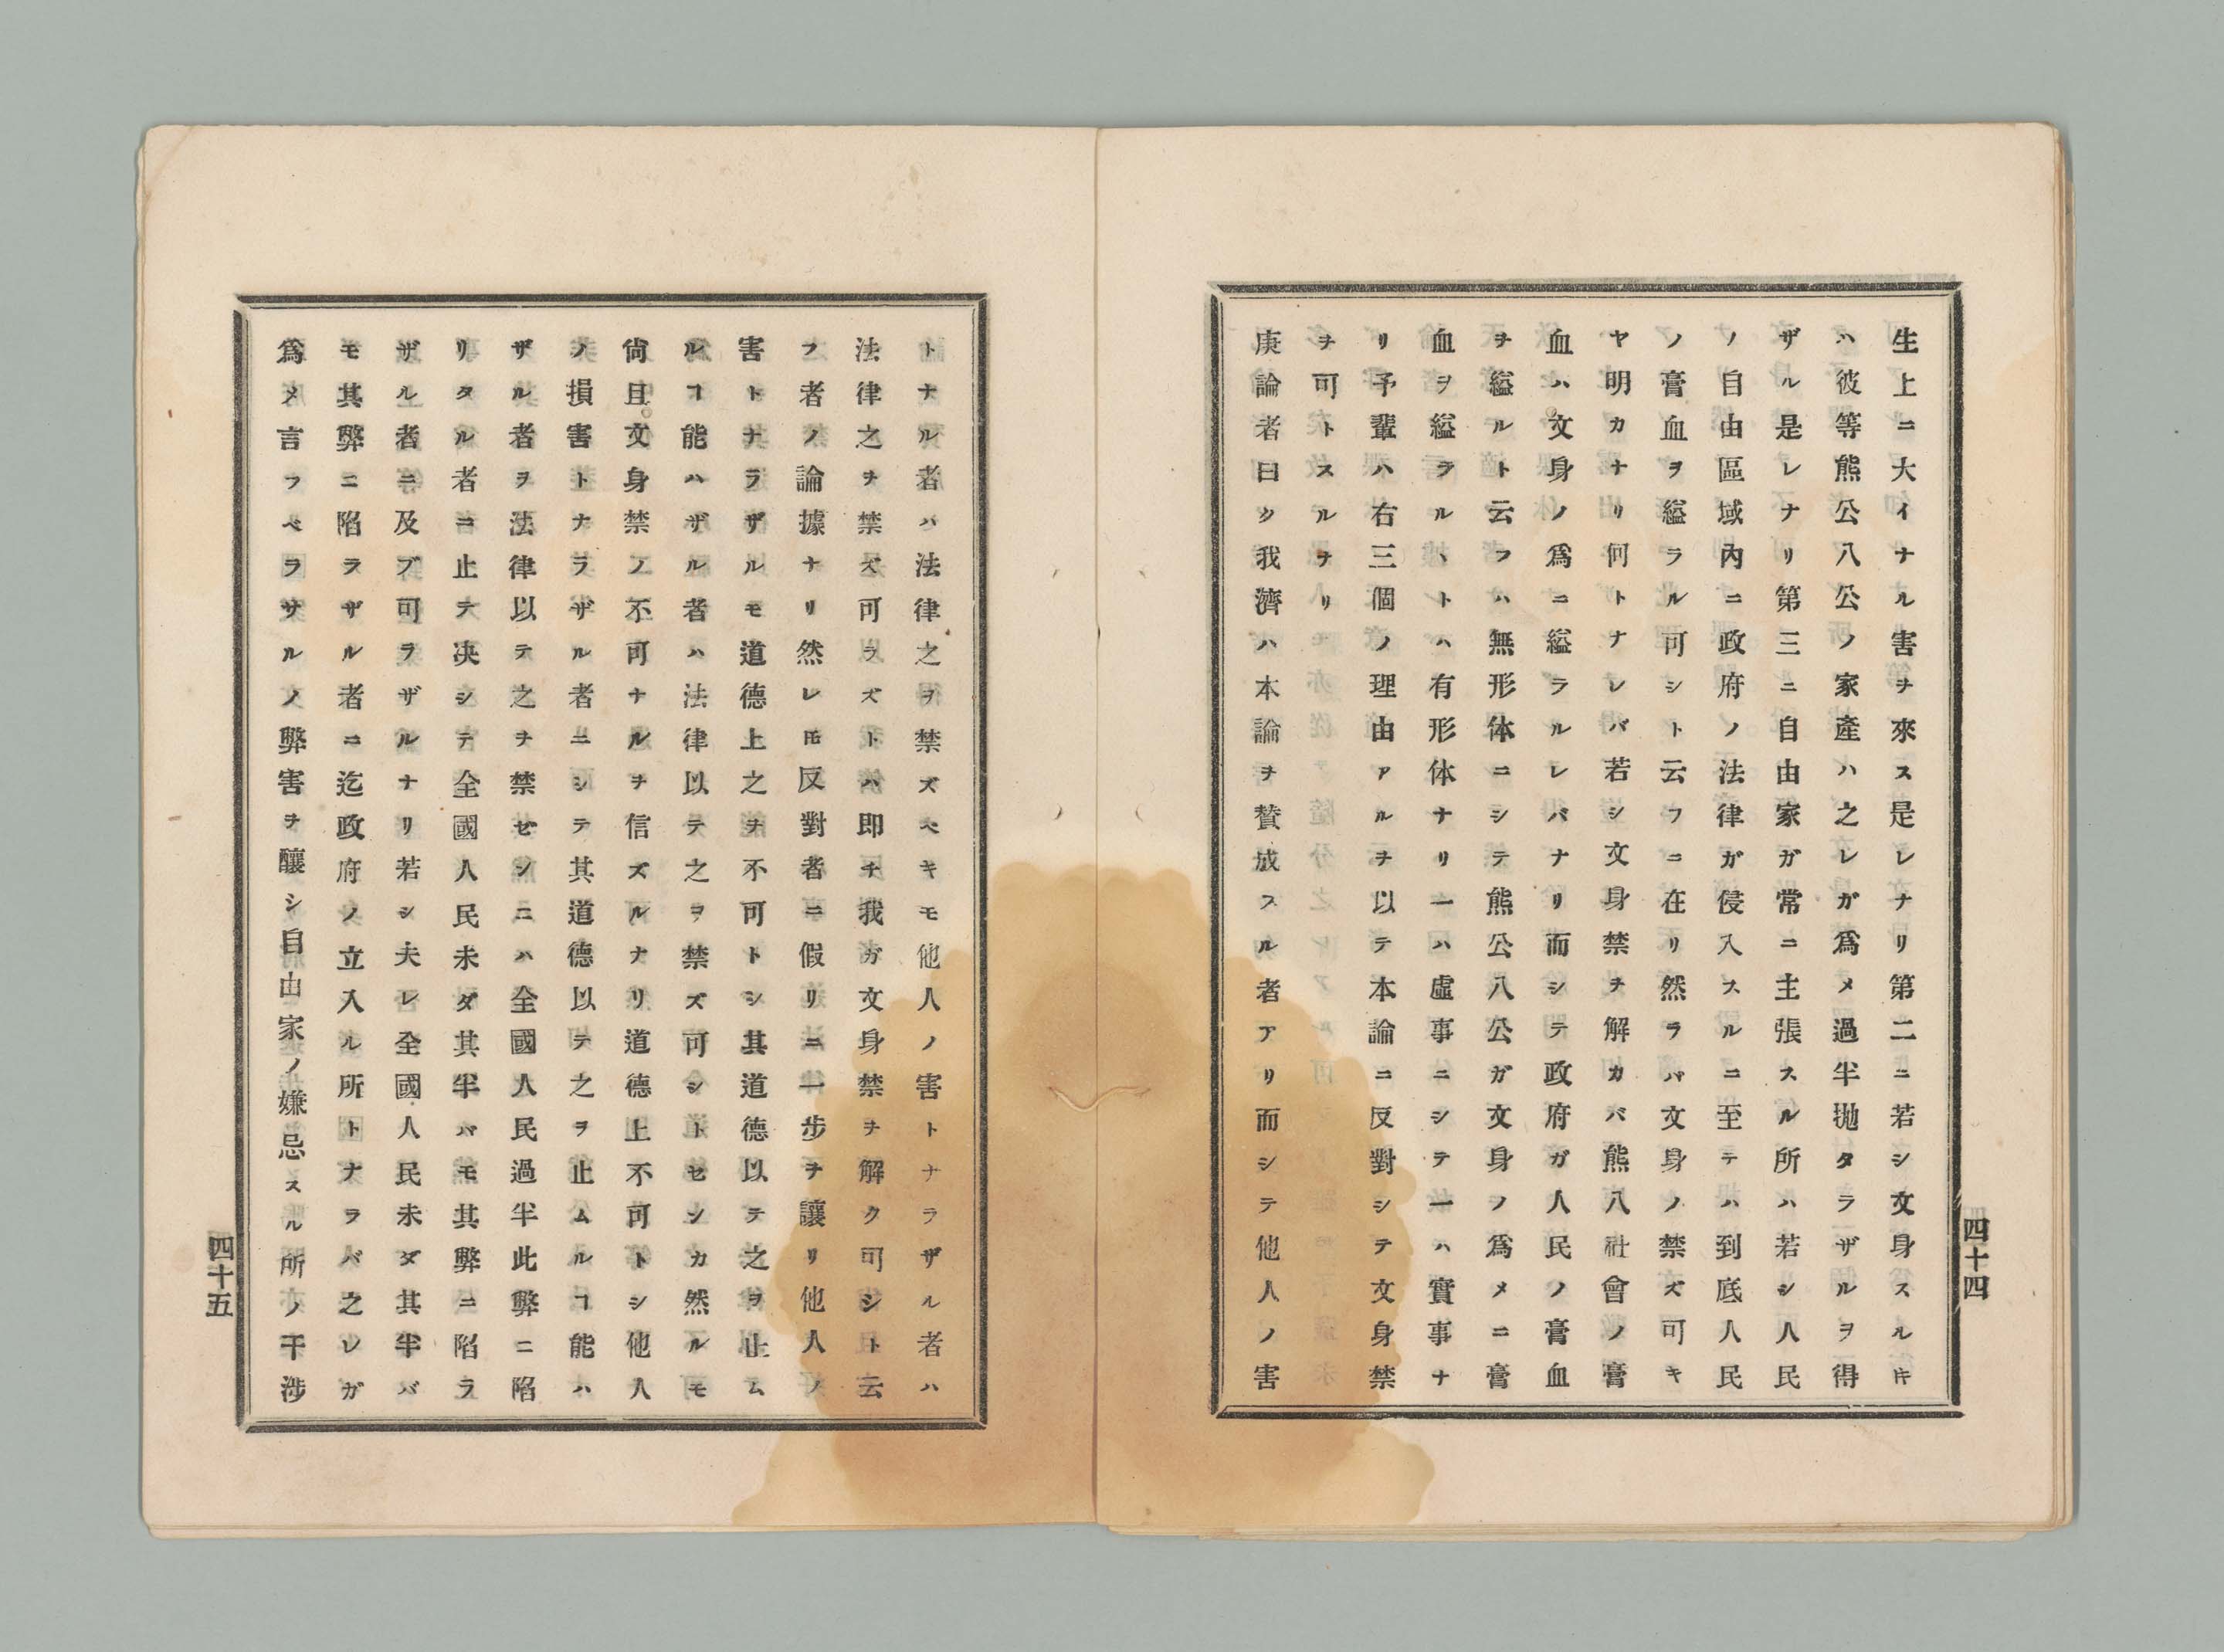 生上ニ大イナル害ヲ來ス是レナリ第二ニ若シ文身スルキ
ハ彼等熊公八公ノ家產ハ之レガ爲メ過半拋タラザルヲ得
ザル是レナリ第三ニ自由家ガ常ニ主張スル所ハ若シ人民
ノ自由區域內ニ政府ノ法律ガ侵入スルニ至テハ到底人民
ノ膏血ヲ縊ラル可シト云フニ在リ然ラバ文身ノ禁ズ可キ
ヤ明カナリ何トナレバ若シ文身禁ヲ解カバ熊八社會ノ膏
血ハ文身ノ爲ニ縊ラルレバナリ而シテ政府ガ人民ノ膏血
ヲ縊ルト云フハ無形体ニシテ熊公八公ガ文身ノ爲メニ膏
血ヲ縊ラルヽトハ有形体ナリ一ハ虛事ニシテ一ハ實事ナ
リ予輩ハ右三個ノ理由アルヲ以テ本論ニ反對シテ文身禁
ヲ可トスルナリ
庚論者曰ク我濟ハ本論ヲ賛成スル者アリ而シテ他人ノ害
四十四
トナル者ハ法律之ヲ禁ズベキモ他人ノ害トナラザル者ハ
法律之ヲ禁ズ可ラズトハ即チ我ガ文身禁ヲ解ク可シト云
フ者ノ論據ナリ然レ𪜈反對者ニ假リニ一步ヲ讓リ他人ノ
害トナラザルモ道德上之ヲ不可トシ其道德以テ之ヲ止ム
ルヿ能ハザル者ハ法律以テ之ヲ禁ズ可シトセンカ然ルモ
尙且文身禁ノ不可ナルヲ信ズルナリ道德上不可トシ他人
ノ損害トナラザル者ニシテ其道德以テ之ヲ止ムルヿ能ハ
ザル者ヲ法律以テ之ヲ禁ゼンニハ全國人民過半此弊ニ陷
リタル者ニ止テ决シテ全國人民未ダ其半バモ其弊ニ陷ラ
ザル者ニ及ブ可ラザルナリ若シ夫レ全國人民未ダ其半バ
モ其弊ニ陷ラザル者ニ迄政府ノ立入ル所トナラバ之レガ
爲メ言フベラサルノ弊害ヲ釀シ自由家ノ嫌忌スル所ノ干涉
四十五